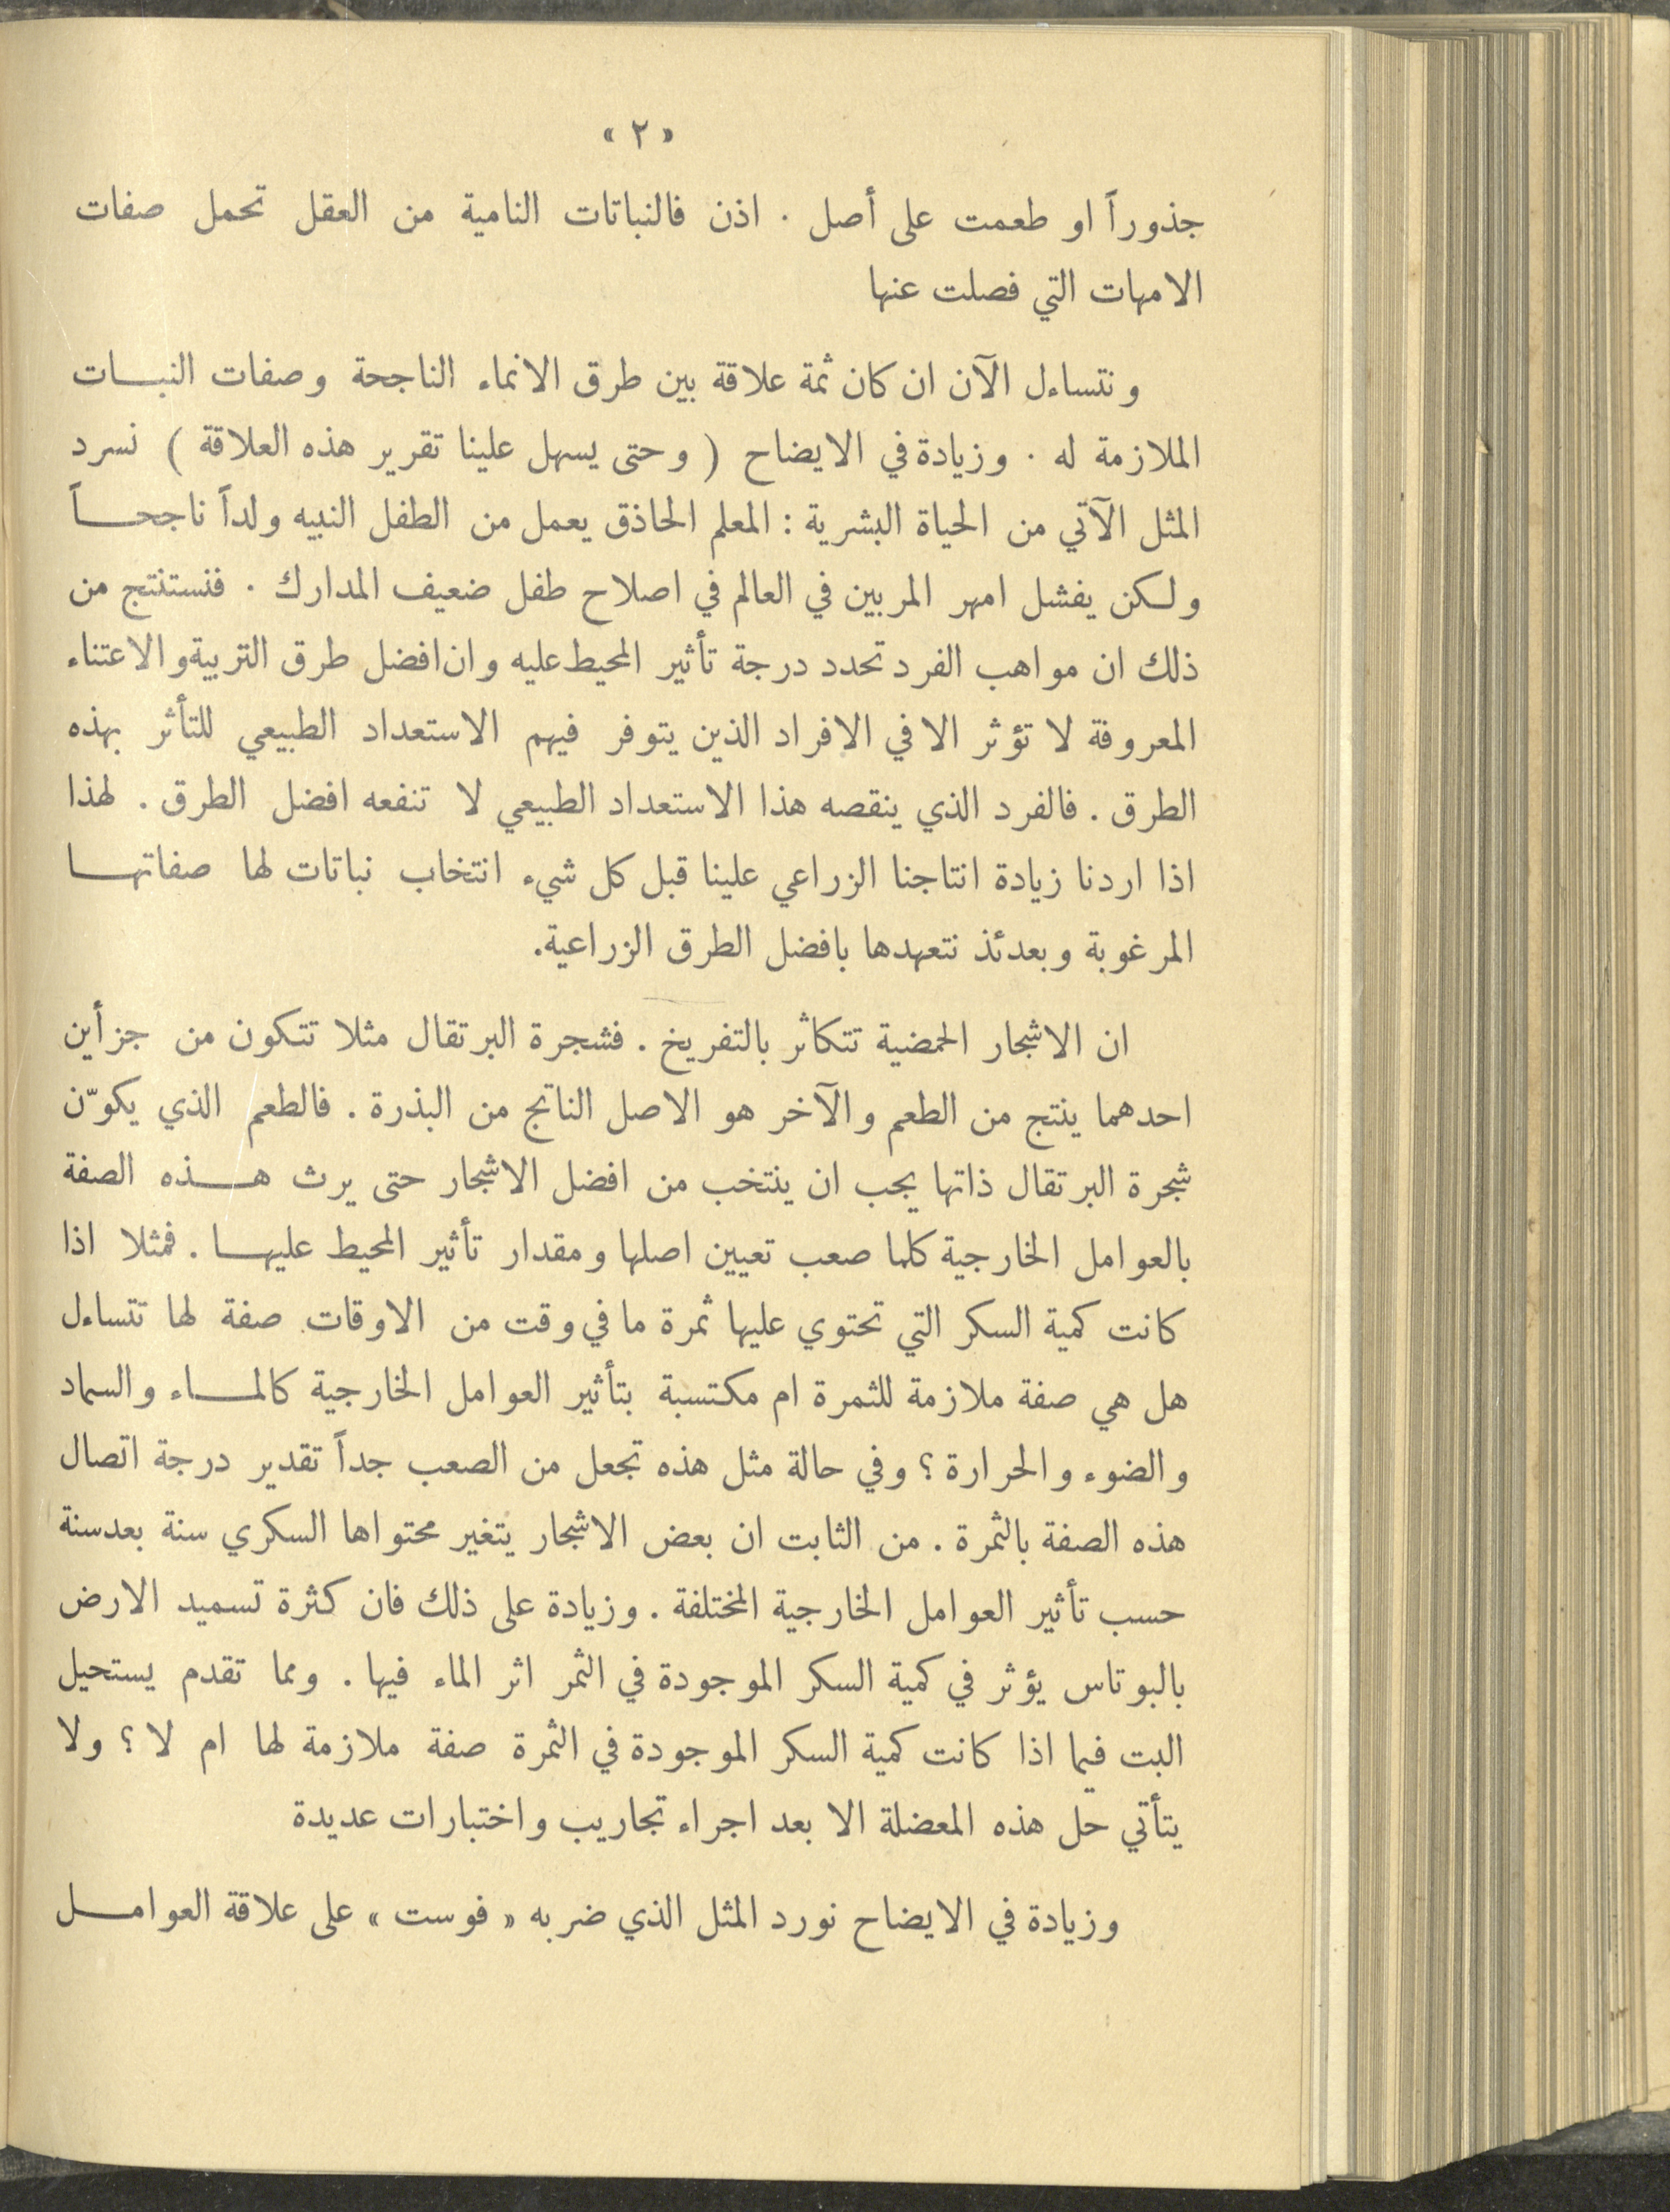 « ٢ »
جذوراً او طعمت على أصل . اذن فالنباتات النامية من العقل تحمل صفات
الامهات التي فصلت عنها
ونتساءل الآن ان كان ثمة علاقة بين طرق الانماء الناجحة وصفات النبات
الملازمة له . وزيادة في الايضاح ( وحتى يسهل علينا تقرير هذه العلاقة ) نسرد
المثل الآتي من الحياة البشرية : المعلم الحاذق يعمل من الطفل النبيه ولداً ناجحاً
ولكن يفشل امهر المربين في العالم في اصلاح طفل ضعيف المدارك . فنستنتج من
ذلك ان مواهب الفرد تحدد درجة تأثير المحيط عليه وان افضل طرق التربية والاعتناء
المعروفة لا تؤثر الا في الافراد الذين يتوفر فيهم الاستعداد الطبيعي للتأثر بهذه
الطرق . فالفرد الذي ينقصه هذا الاستعداد الطبيعي لا تنفعه افضل الطرق . لهذا
اذا اردنا زيادة انتاجنا الزراعي علينا قبل كل شيء انتخاب نباتات لها صفاتها
المرغوبة وبعدئذ نتعهدها بافضل الطرق الزراعية.
ان الاشجار الحمضية تتكاثر بالتفريخ . فشجرة البرتقال مثلا تتكون من جزأين
احدهما ينتج من الطعم والآخر هو الاصل الناتج من البذرة . فالطعم الذي يكوّن
شجرة البرتقال ذاتها يجب ان ينتخب من افضل الاشجار حتى يرث هذه الصفة
بالعوامل الخارجية كلما صعب تعيين اصلها ومقدار تأثير المحيط عليها . فمثلا اذا
كانت كمية السكر التي تحتوي عليها ثمرة ما في وقت من الاوقات صفة لها تتساءل
هل هي صفة ملازمة للثمرة ام مكتسبة بتأثير العوامل الخارجية كالماء والسماد
والضوء والحرارة ؟ وفي حالة مثل هذه تجعل من الصعب جداً تقدير درجة اتصال
هذه الصفة بالثمرة . من الثابت ان بعض الاشجار يتغير محتواها السكري سنة بعد سنة
حسب تأثير العوامل الخارجية المختلفة . وزيادة على ذلك فان كثرة تسميد الارض
بالبوتاس يؤثر في كمية السكر الموجودة في الثمر اثر الماء فيها . ومما تقدم يستحيل
البت فيما اذا كانت كمية السكر الموجودة في الثمرة صفة ملازمة لها ام لا ؟ ولا
يتأتي حل هذه المعضلة الا بعد اجراء تجاريب واختبارات عديدة
وزيادة في الايضاح نورد المثل الذي ضربه « فوست » على علاقة العوامل